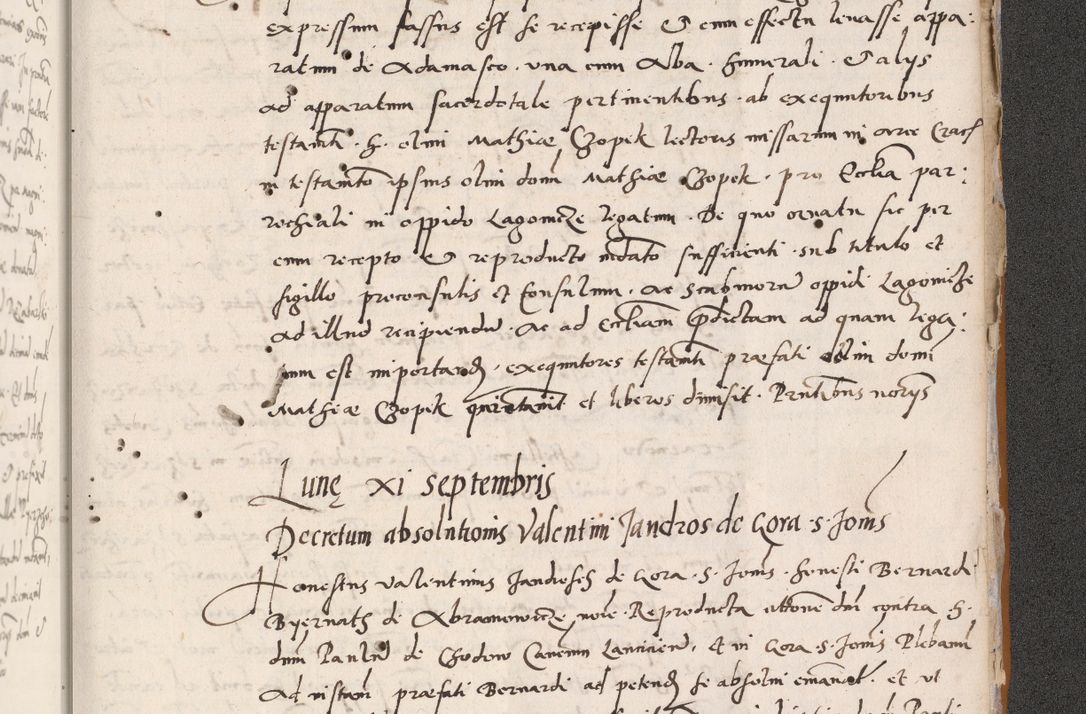 expressum fassus est se recepisse & cum effectu levasse appa:
ratum de Adamasco . una cum Alba . humerali . & alijs
ad apparatum sacerdotale pertinentibus . ab exequutoribus
testamti . h. olim Mathiæ Czopek lectoris missarum in arce Cracf
in testamto ipsius olim domi Mathiæ Czopek . pro Ecclia par:
rochiali in oppido Lagowicze legatum . De quo ornatu sic per
eum recepto & reproducto mdato sufficienti . sub titulo et
sigillo preconsulis et Consulum . ac Scabinorũ oppidi Lagowicze
ad illud recipiendũ . ac ad Eccliam pdictam ad quam lega:
tum est importand . exequutores testamti præfati olim domi
Mathiæ Czopek quietavit et liberos dimisit . Pntibus norijs
Lunę xi septembris
Decretum absolutionis Valentini Jandros de Gora . s . Joms
Honestus Valentinus Jandrosch de Gora . S . Joms . honesti Bernardi
Byernath de Abramowicze noie . Reproducta attone dni contra h.
dnm Paulũ de Chodow Canonicũ Lanciciens . & in Gora . S . Joms Plebanũ
Ad instam præfati Bernardi ad petend se absolvi emanat . et ut